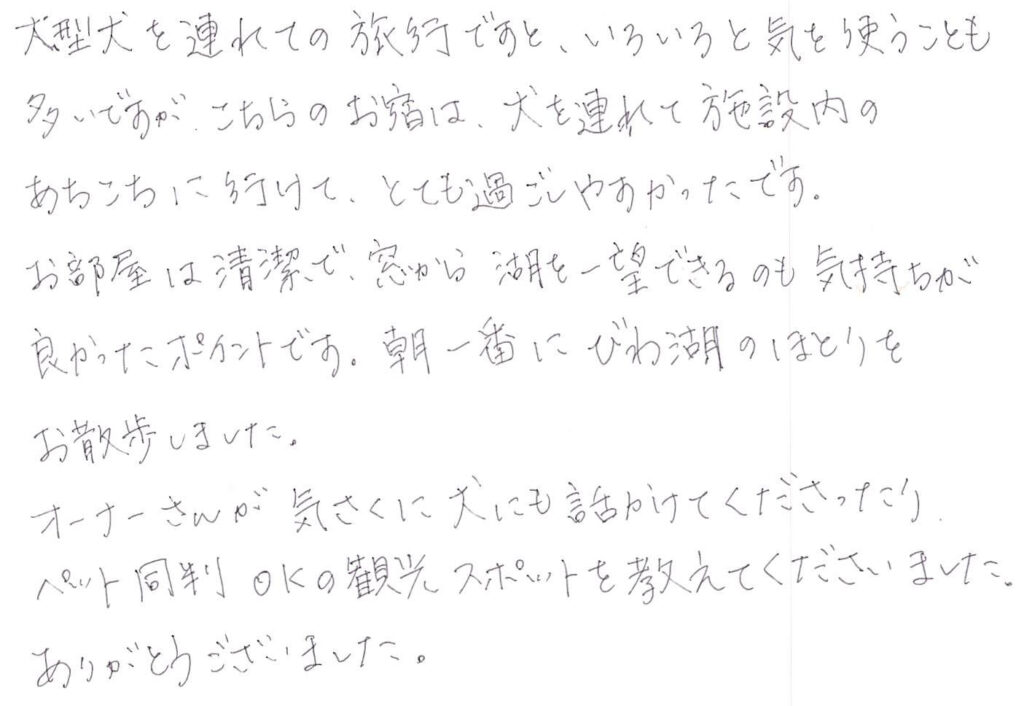 犬型犬を連れての旅行ですと、いろいろと気を使うことも
多いですが、こちらのお宿は、犬を連れて施設内の
あちこちに行けて、とても過ごしやすかったです。
お部屋は清潔で、窓から湖を一望できるのも気持ちが
良かったポイントです。朝一番にびわ湖のほとりを
お散歩しました。
オーナーさんが気さくに犬にも話かけてくださったり、
ペット同判OKの観光スポットを教えてくださいました。
ありがとうございました。